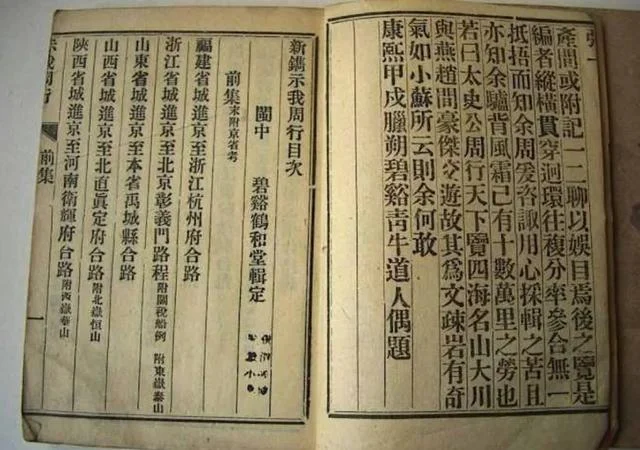 產間或附記一二聊以娛目焉後之覽是
編者縱橫貫穿迴環往複分率參合無一
抵捂而知余周爰咨諏用心採輯之苦且
亦知余驢背風霜已有十數萬里之勞也
若曰太史公周行天下覽四海名山大川
與燕趙間豪傑交遊故其為文疎宕有奇
氣如小蘇所云則余何敢
康熙甲戌臘朔碧谿青牛道人偶題
新鐫示我周行目次
閩中　碧谿鶴和堂輯定
前集末附京省考
福建省城進京至浙江杭州府合路
浙江省城進京至北京彰義門路程附關稅船例 附東嶽泰山
山東省城進京至本省禹城縣合路
山西省城進京至北直真定府合路附北嶽恒山
陝西省城進京至河南衛輝府合路附西嶽華山
示我周行
前集